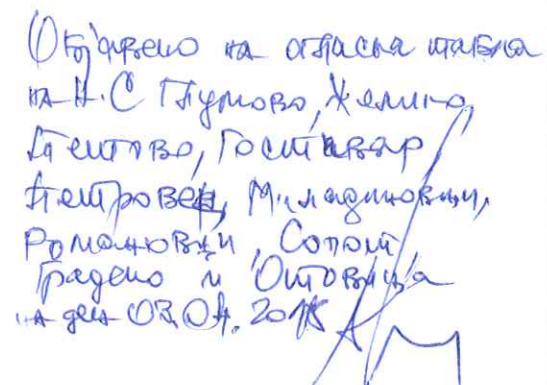 Објавено на огласна табла
на Н.С Тумово, Желино,
Тетово, Гостивар
Петровец, Миладиновци,
Романовци, Сопот
Градено и Отовица
на ден 03.04. 2015